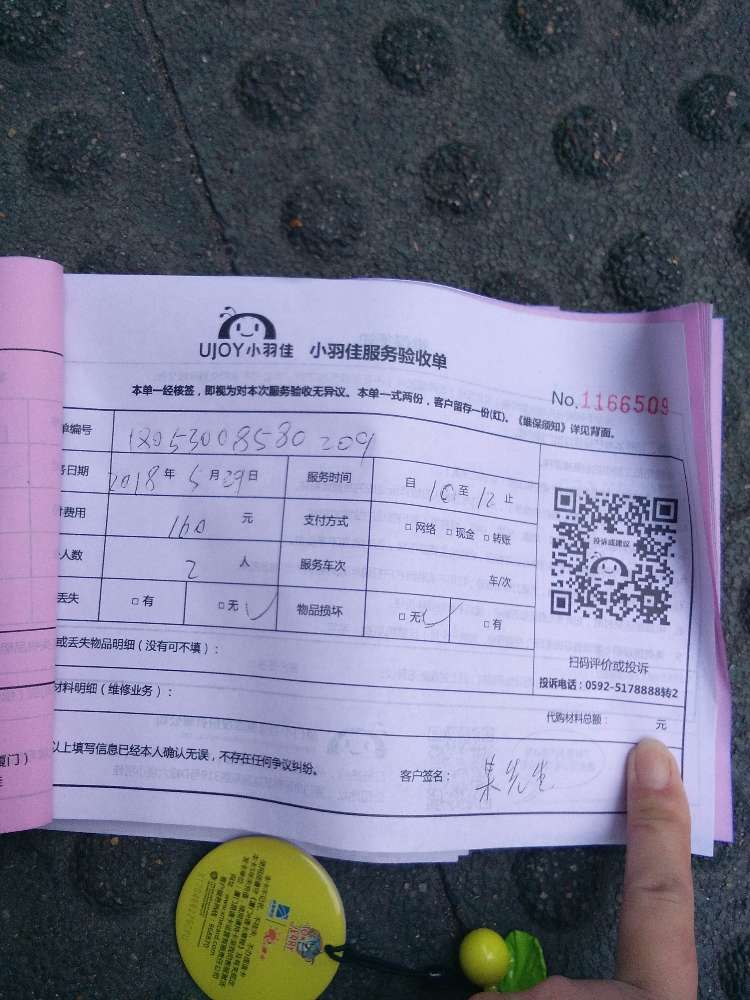 UJOY小羽佳 小羽佳服务验收单
本单一经核签，即视为对本次服务验收无异议。本单一式两份，客户留存一份(红)。《维保须知》详见背面。
No.1166509
单编号 18053008580209
务日期 2018年5月29日 服务时间 自10至12止
费用 160元 支付方式 □网络 □现金 □转账
人数 2人 服务车次 车/次
丢失 □有 □无✓ 物品损坏 □无✓ □有
投诉或建议
扫码评价或投诉
投诉电话：0592-5178888转2
或丢失物品明细（没有可不填）：
材料明细（维修业务）：
代购材料总额： 元
以上填写信息已经本人确认无误，不存在任何争议纠纷。
客户签名： 先生
厦门）